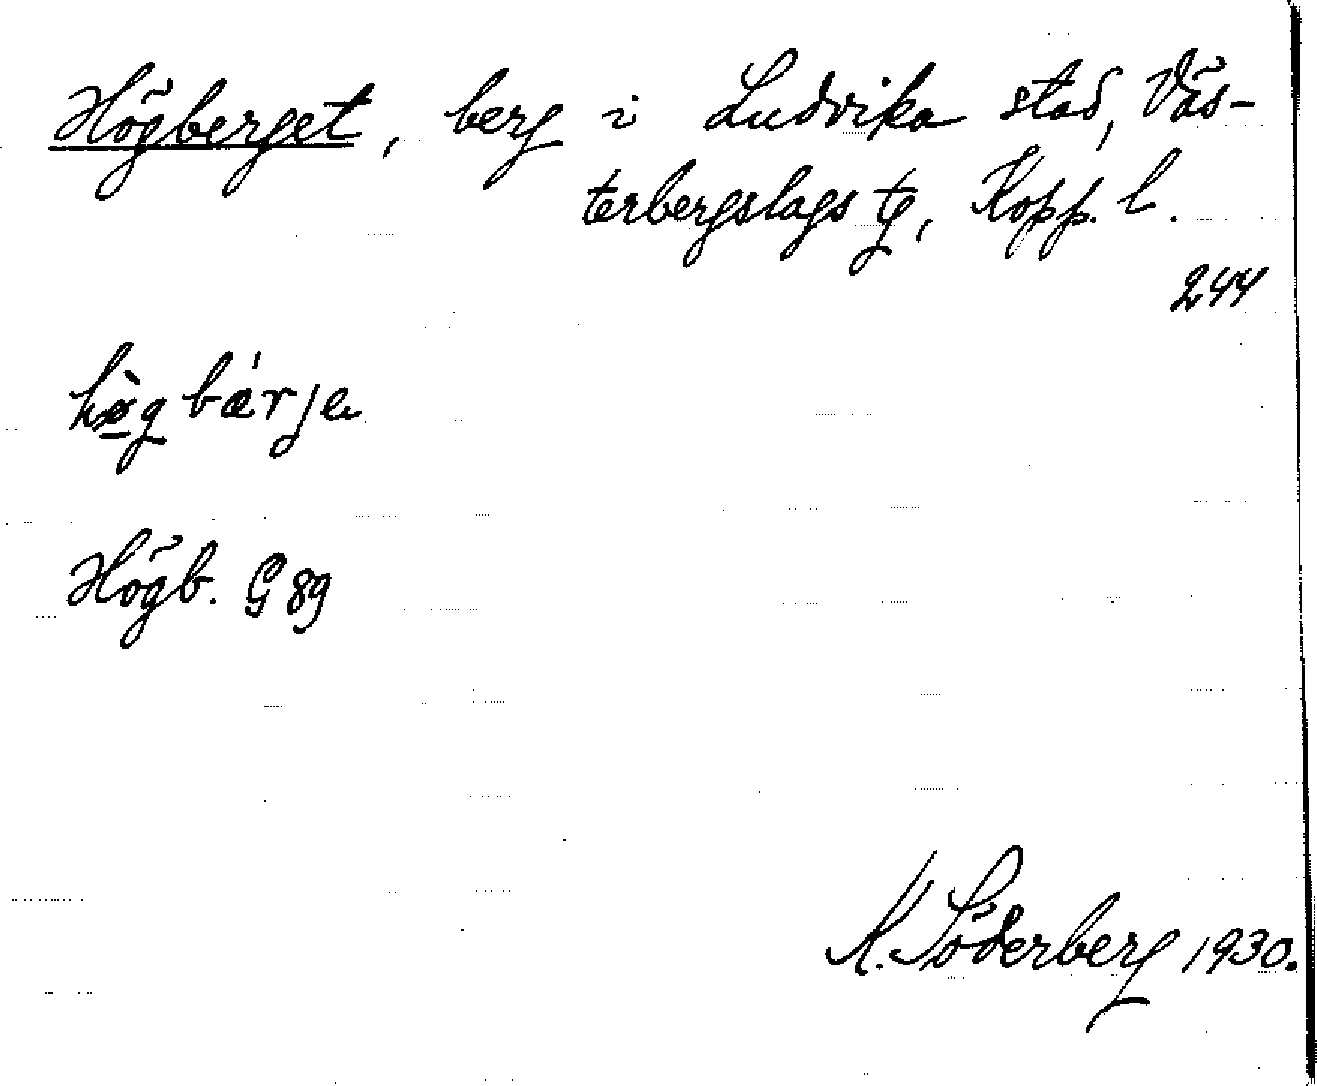 Högberget, berg i Ludvika stad, Väs-
terbergslags tg, Kopp. l.
244
hø̀gbǽrje
Högb. G 89
K. Söderberg 1930.